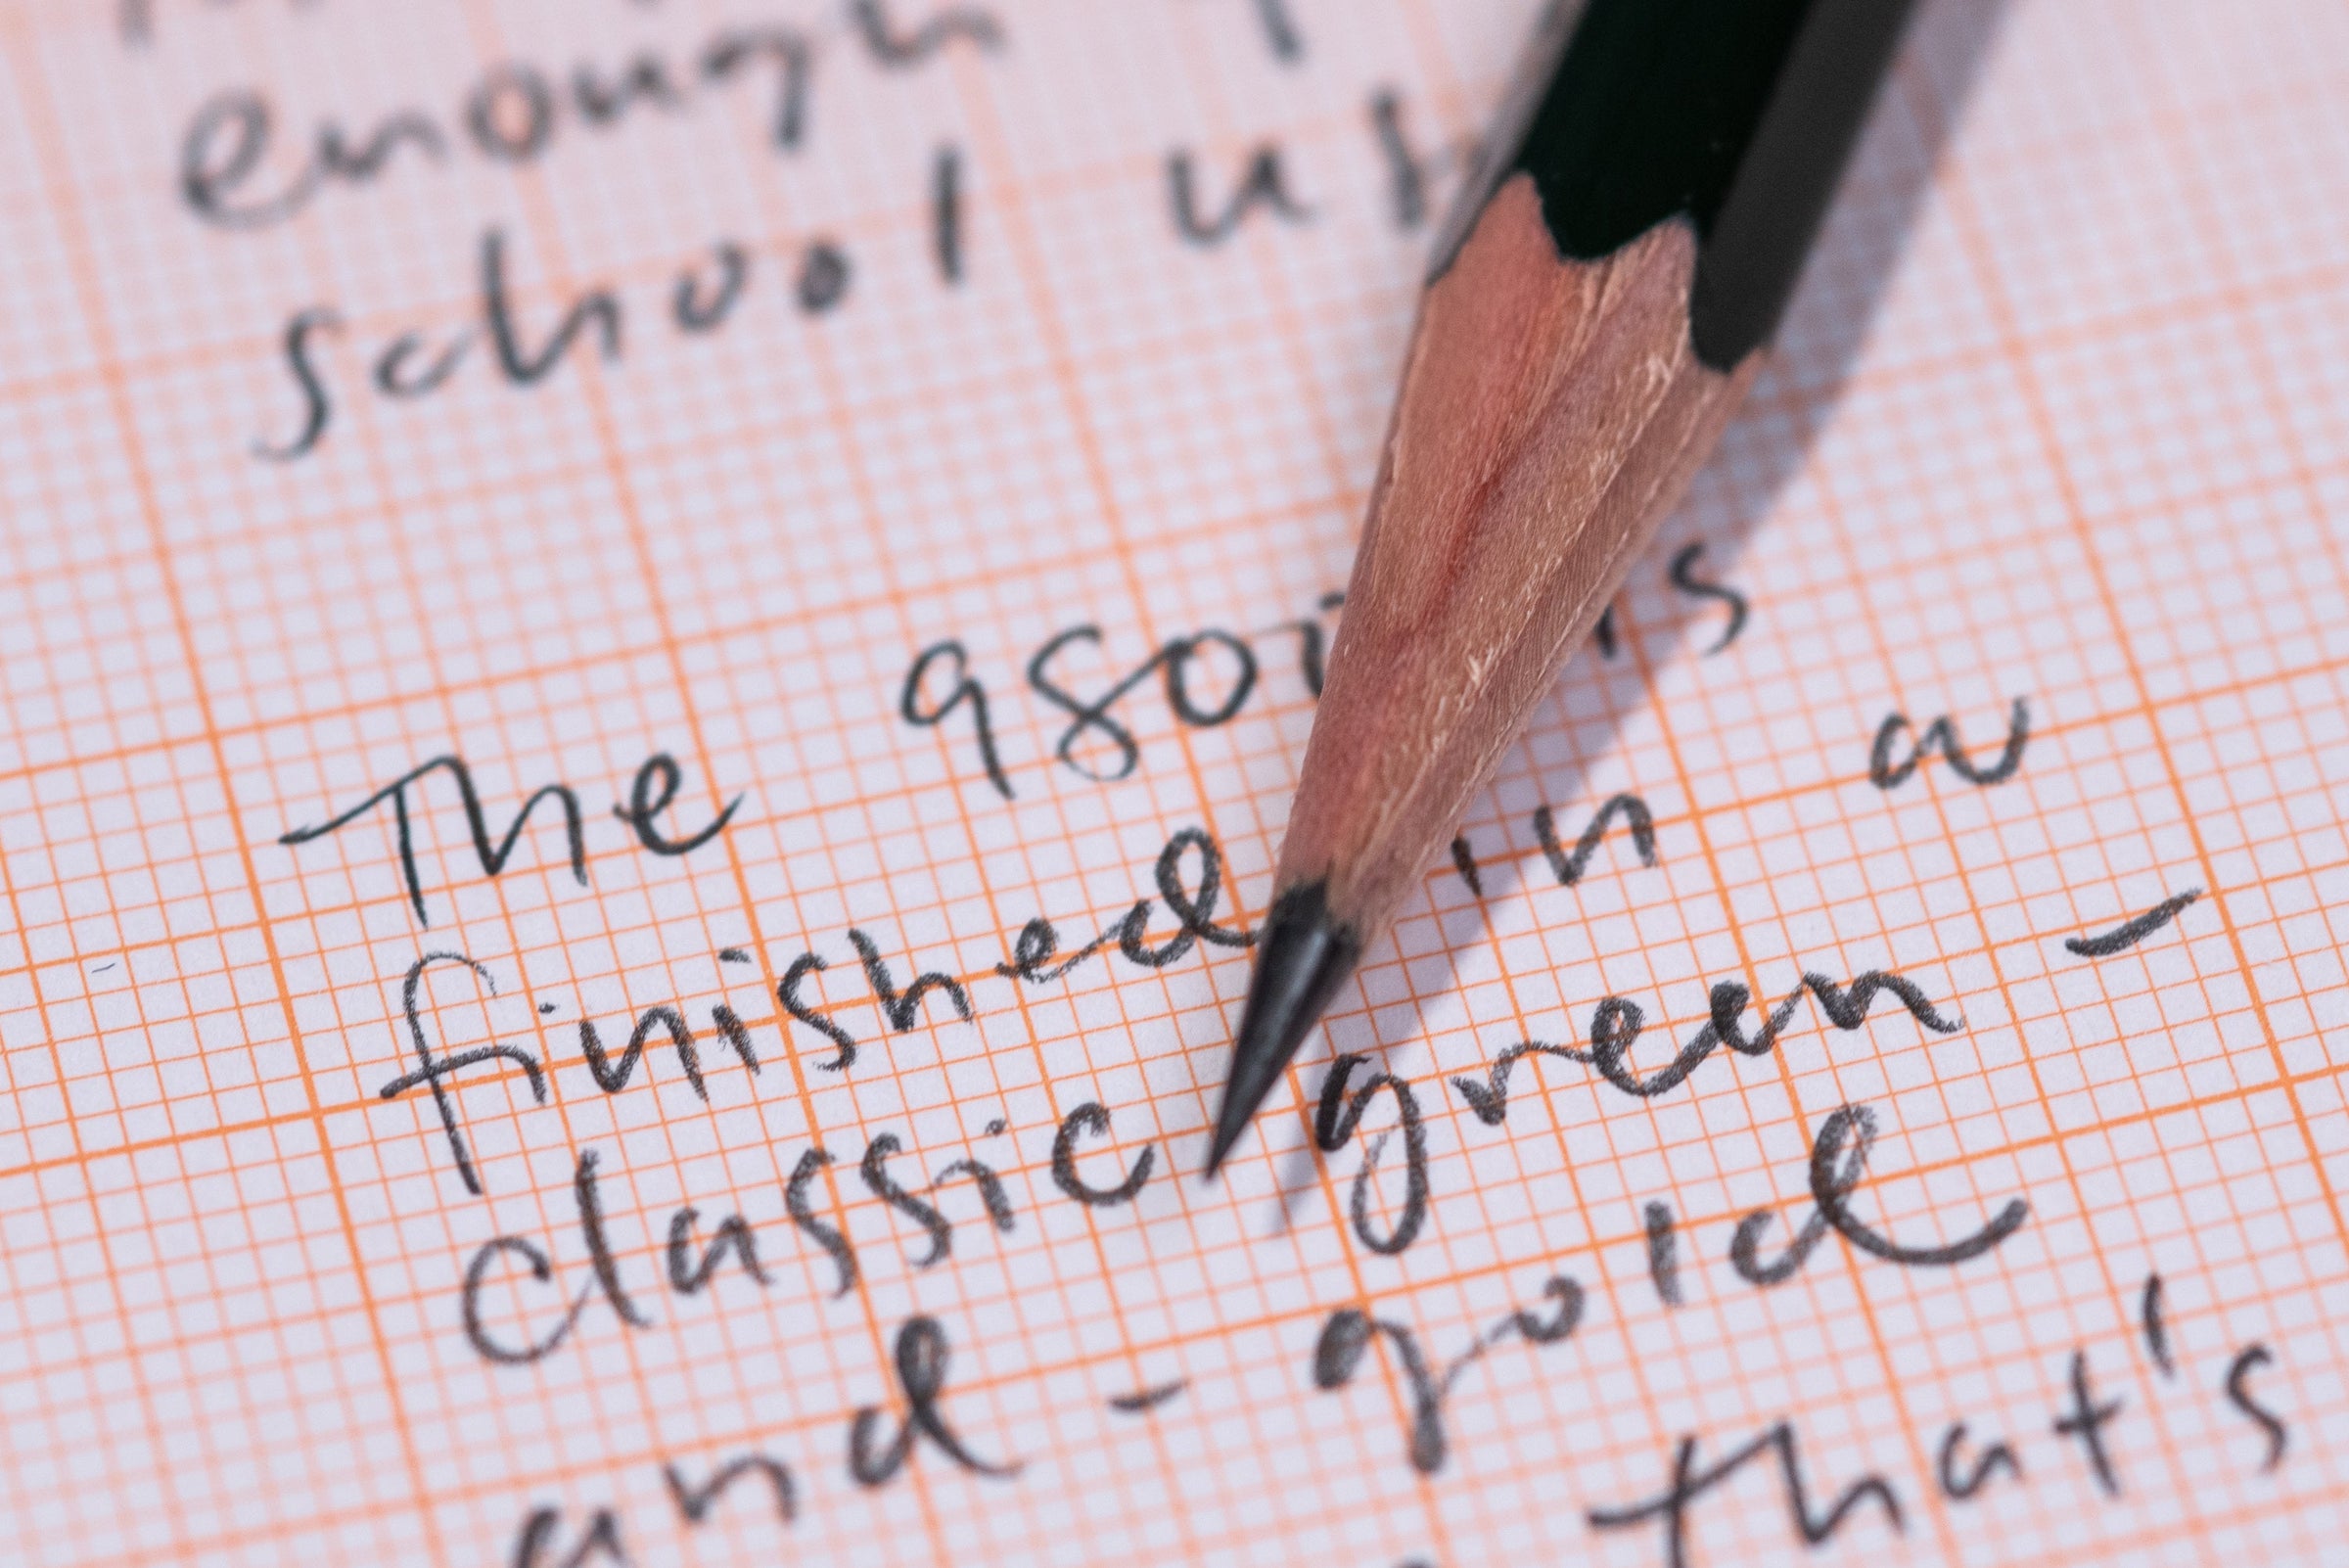 enough
school
The is
finished in a
classic green-
and-gold
that's